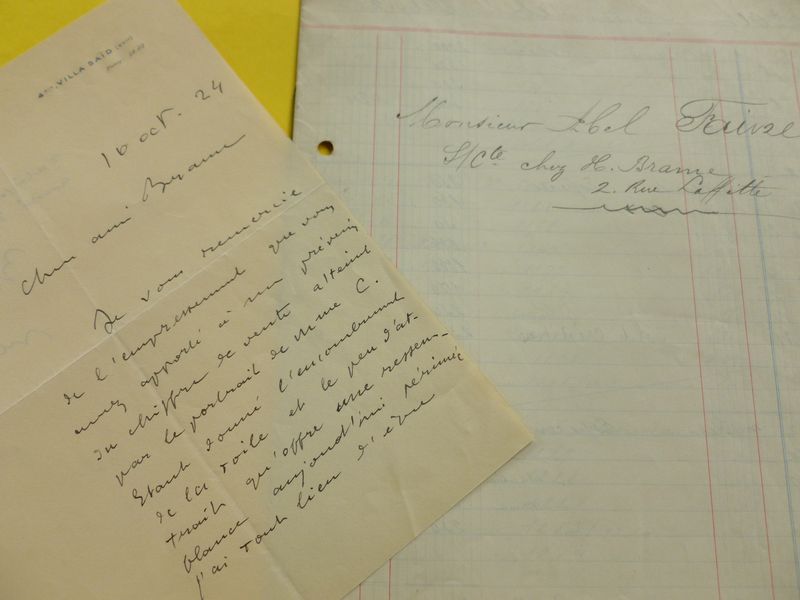 VILLA SAÏD
16 oct. 24
Cher ami Brame
Je vous remercie
de l'empressement que vous
avez apporté à me prévenir
du chiffre de vente atteint
par le portrait de Mme C.
Etant donné l'encombrement
de la toile et le peu d'at-
trait qu'offre une ressem-
blance aujourd'hui périmée
j'ai tout lieu d'être
Monsieur Abel Faivre
S/Cte chez H. Brame
2. Rue Laffitte